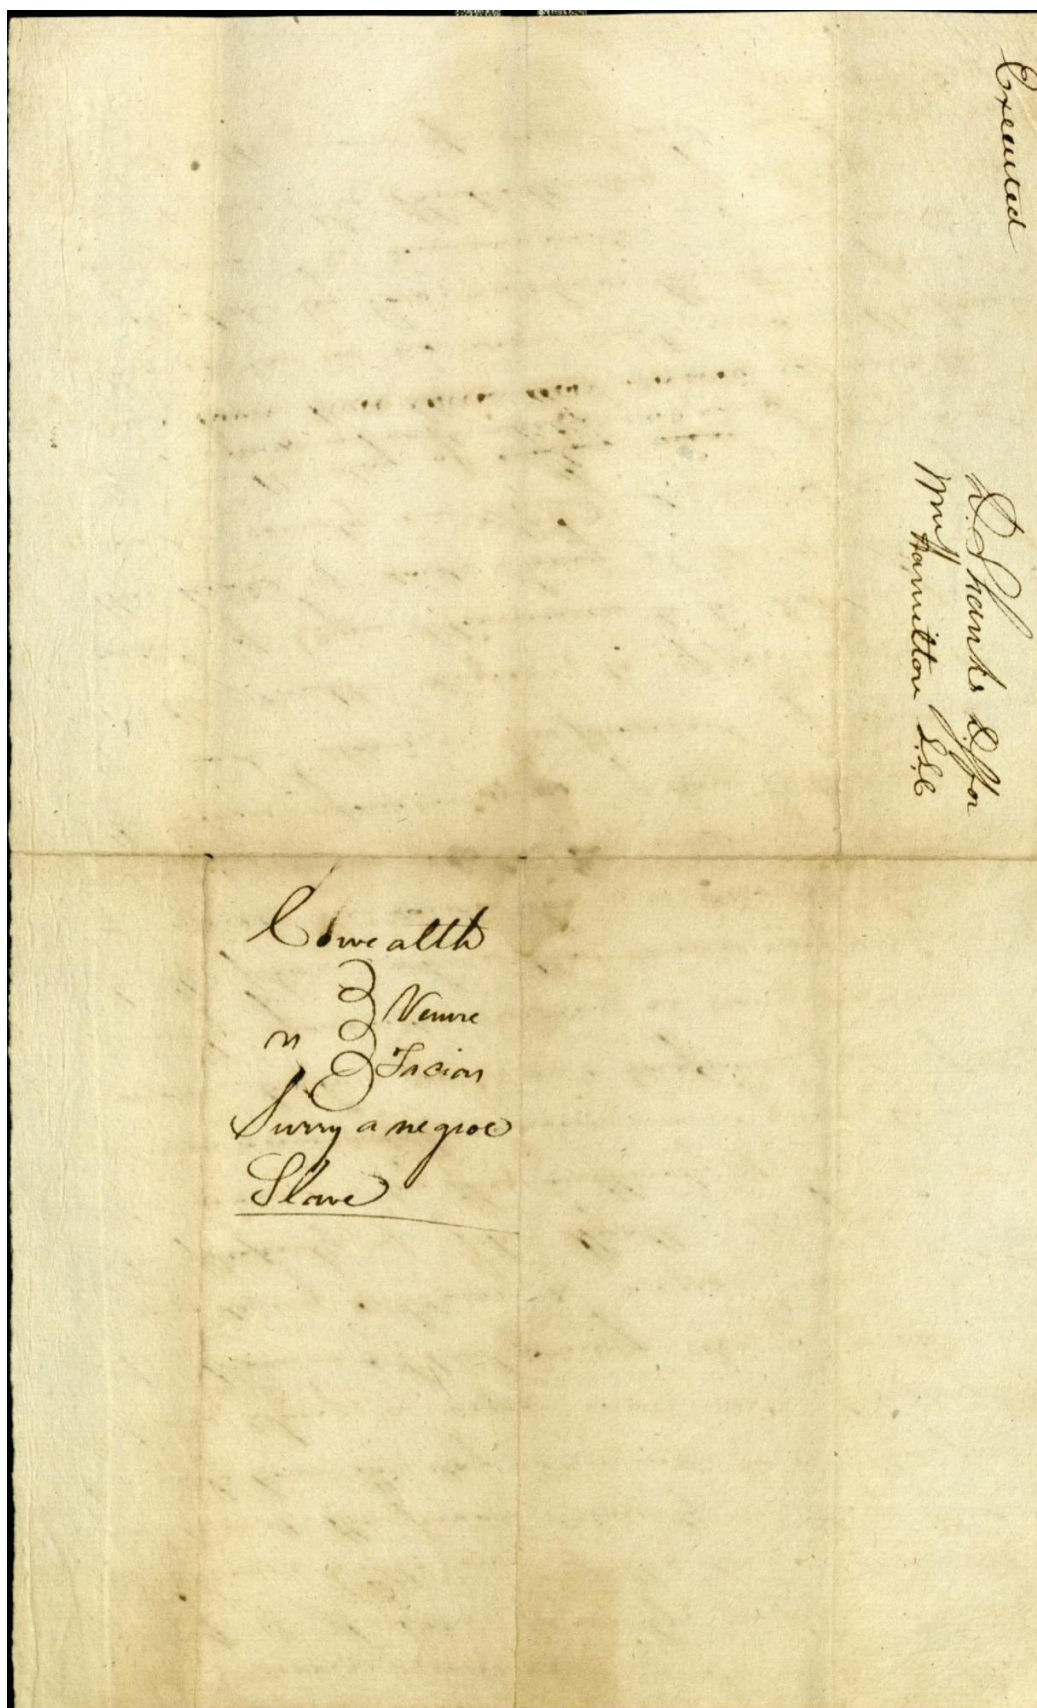 Executed
D. Shanks D.S. for
Wm Hamilton S.L.C
Cowealth
vs } Venire
Facias
Surry a negroe
Slave